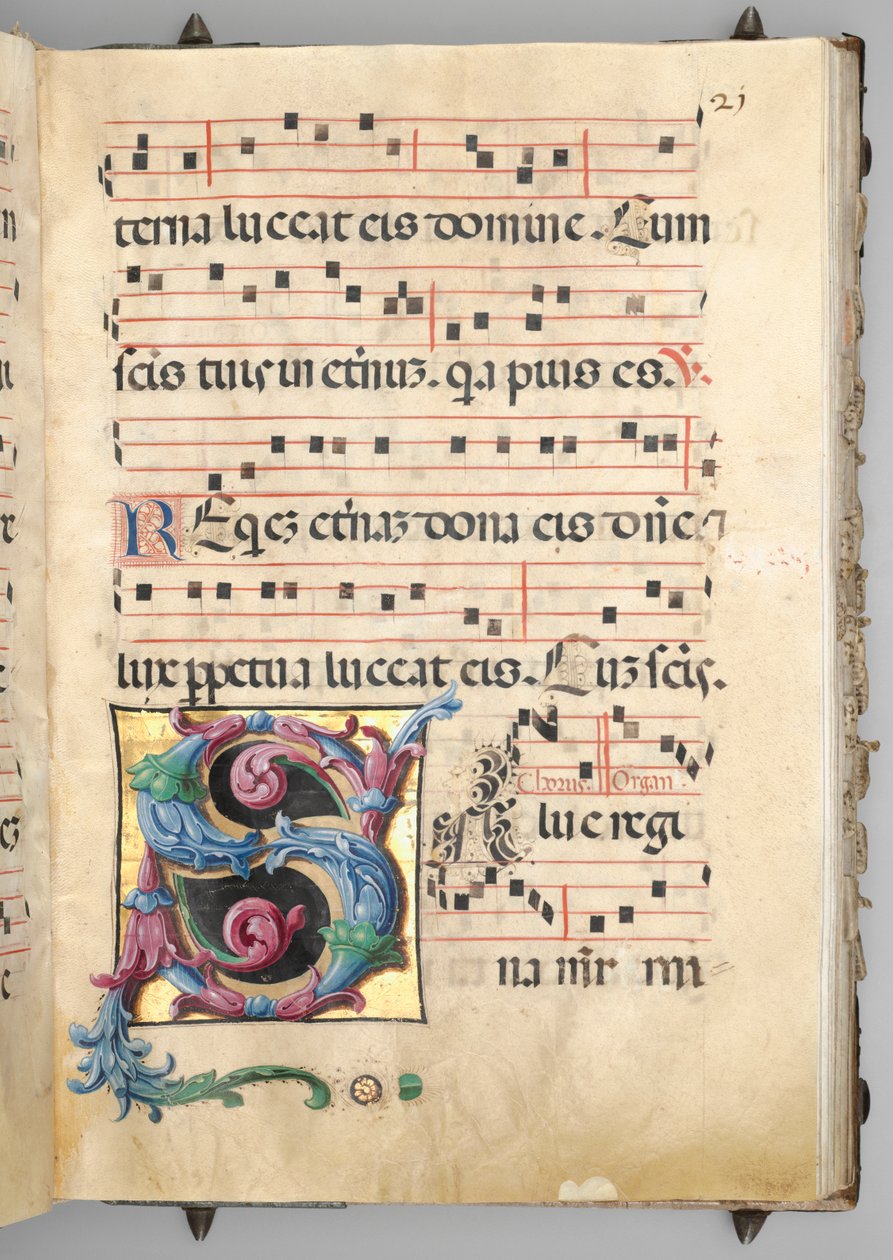 21
terna luceat eis domine. Cum
scīs tuis in etr̄nuz. qa pius es. ℣.
REqez etr̄naz dona eis dn̄e
lux ꝑpetua luceat eis. Cuz scīs.
Chorus. Organ
SALue regi
na mīr mi